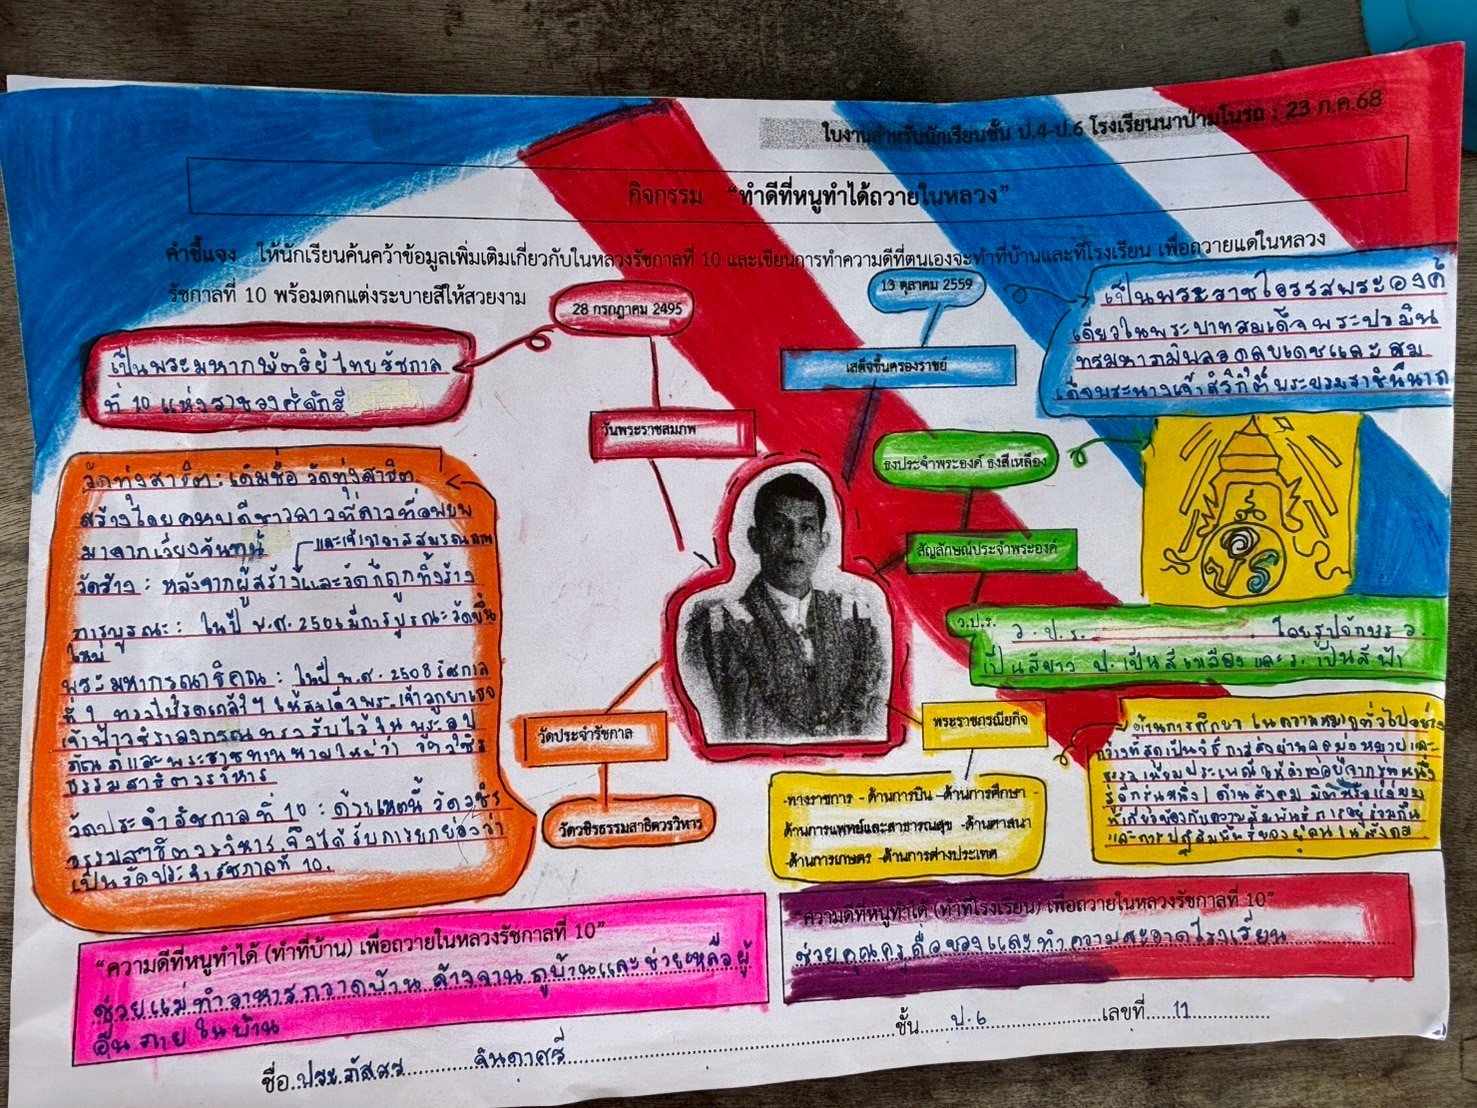 ใบงานสำหรับนักเรียนชั้น ป.4-ป.6 โรงเรียนนาป่ามโนรถ : 23 ก.ค.68
กิจกรรม "ทำดีที่หนูทำได้ถวายในหลวง"
คำชี้แจง ให้นักเรียนค้นคว้าข้อมูลเพิ่มเติมเกี่ยวกับในหลวงรัชกาลที่ 10 และเขียนการทำความดีที่ตนเองจะทำที่บ้านและที่โรงเรียน เพื่อถวายแด่ในหลวง
รัชกาลที่ 10 พร้อมตกแต่งระบายสีให้สวยงาม
28 กรกฎาคม 2495
เป็นพระมหากษัตริย์ไทยรัชกาล
ที่ 10 แห่งราชวงศ์จักรี
วันพระราชสมภพ
13 ตุลาคม 2559
เสด็จขึ้นครองราชย์
เป็นพระราชโอรสพระองค์
เดียวในพระบาทสมเด็จพระปรมิน
ทรมหาภูมิพลอดุลยเดชและสม
เด็จพระนางเจ้าสิริกิติ์ พระบรมราชินีนาถ
ธงประจำพระองค์ ธงสีเหลือง
สัญลักษณ์ประจำพระองค์
ว.ป.ร.
ว.ป.ร. โดยรูปอักษร ว.
เป็นสีขาว ป.เป็นสีเหลือง และ ร. เป็นสีฟ้า
วัดทุ่งสาธิต : เดิมชื่อ วัดทุ่งสาธิต
สร้างโดยคหบดีชาวลาวที่
มาจากเวียงจันทน์
วัดร้าง : หลังจากผู้สร้าง และวัดก็ถูกทิ้งร้าง
การบูรณะ : ในปี พ.ศ. 2506 มีการบูรณะวัดขึ้น
ใหม่
พระมหากรุณาธิคุณ : ในปี พ.ศ. 2508 รัชกาล
ที่ 9 ทรงโปรดเกล้าฯ ให้สมเด็จพระเจ้าลูกยาเธอ
เจ้าฟ้าวชิราลงกรณทรงรับไว้ในพระอุป
ถัมภ์และพระราชทานนามใหม่ว่า วัดวชิร
ธรรมสาธิตวรวิหาร
วัดประจำรัชกาลที่ 10 : ด้วยเหตุนี้ วัดวชิร
ธรรมสาธิตวรวิหาร จึงได้รับการยกย่องว่า
เป็นวัดประจำรัชกาลที่ 10.
วัดประจำรัชกาล
วัดวชิรธรรมสาธิตวรวิหาร
พระราชกรณียกิจ
-ทางราชการ -ด้านการบิน -ด้านการศึกษา -
ด้านการแพทย์และสาธารณสุข -ด้านศาสนา
-ด้านการเกษตร -ด้านการต่างประเทศ
ด้านการศึกษา ในความหมายทั่วไปอย่าง
กว้างที่สุดเป็นวิธีการส่งผ่านจุดมุ่งหมายและ
ธรรมเนียมประเพณีให้ดำรงอยู่จากรุ่นหนึ่ง
สู่อีกรุ่นหนึ่ง / ด้านสังคม
ที่เกี่ยวข้องกับความสัมพันธ์ การอยู่ร่วมกัน
และการปฏิสัมพันธ์ของผู้คนในสังคม
"ความดีที่หนูทำได้ (ทำที่บ้าน) เพื่อถวายในหลวงรัชกาลที่ 10"
ช่วยแม่ทำอาหาร กวาดบ้าน ล้างจาน ถูบ้านและช่วยเหลือผู้
อื่นภายในบ้าน
"ความดีที่หนูทำได้ (ทำที่โรงเรียน) เพื่อถวายในหลวงรัชกาลที่ 10"
ช่วยคุณครูถือของและทำความสะอาดโรงเรียน
ชื่อ ประภัสสร จินดาศรี ชั้น ป.6 เลขที่ 11